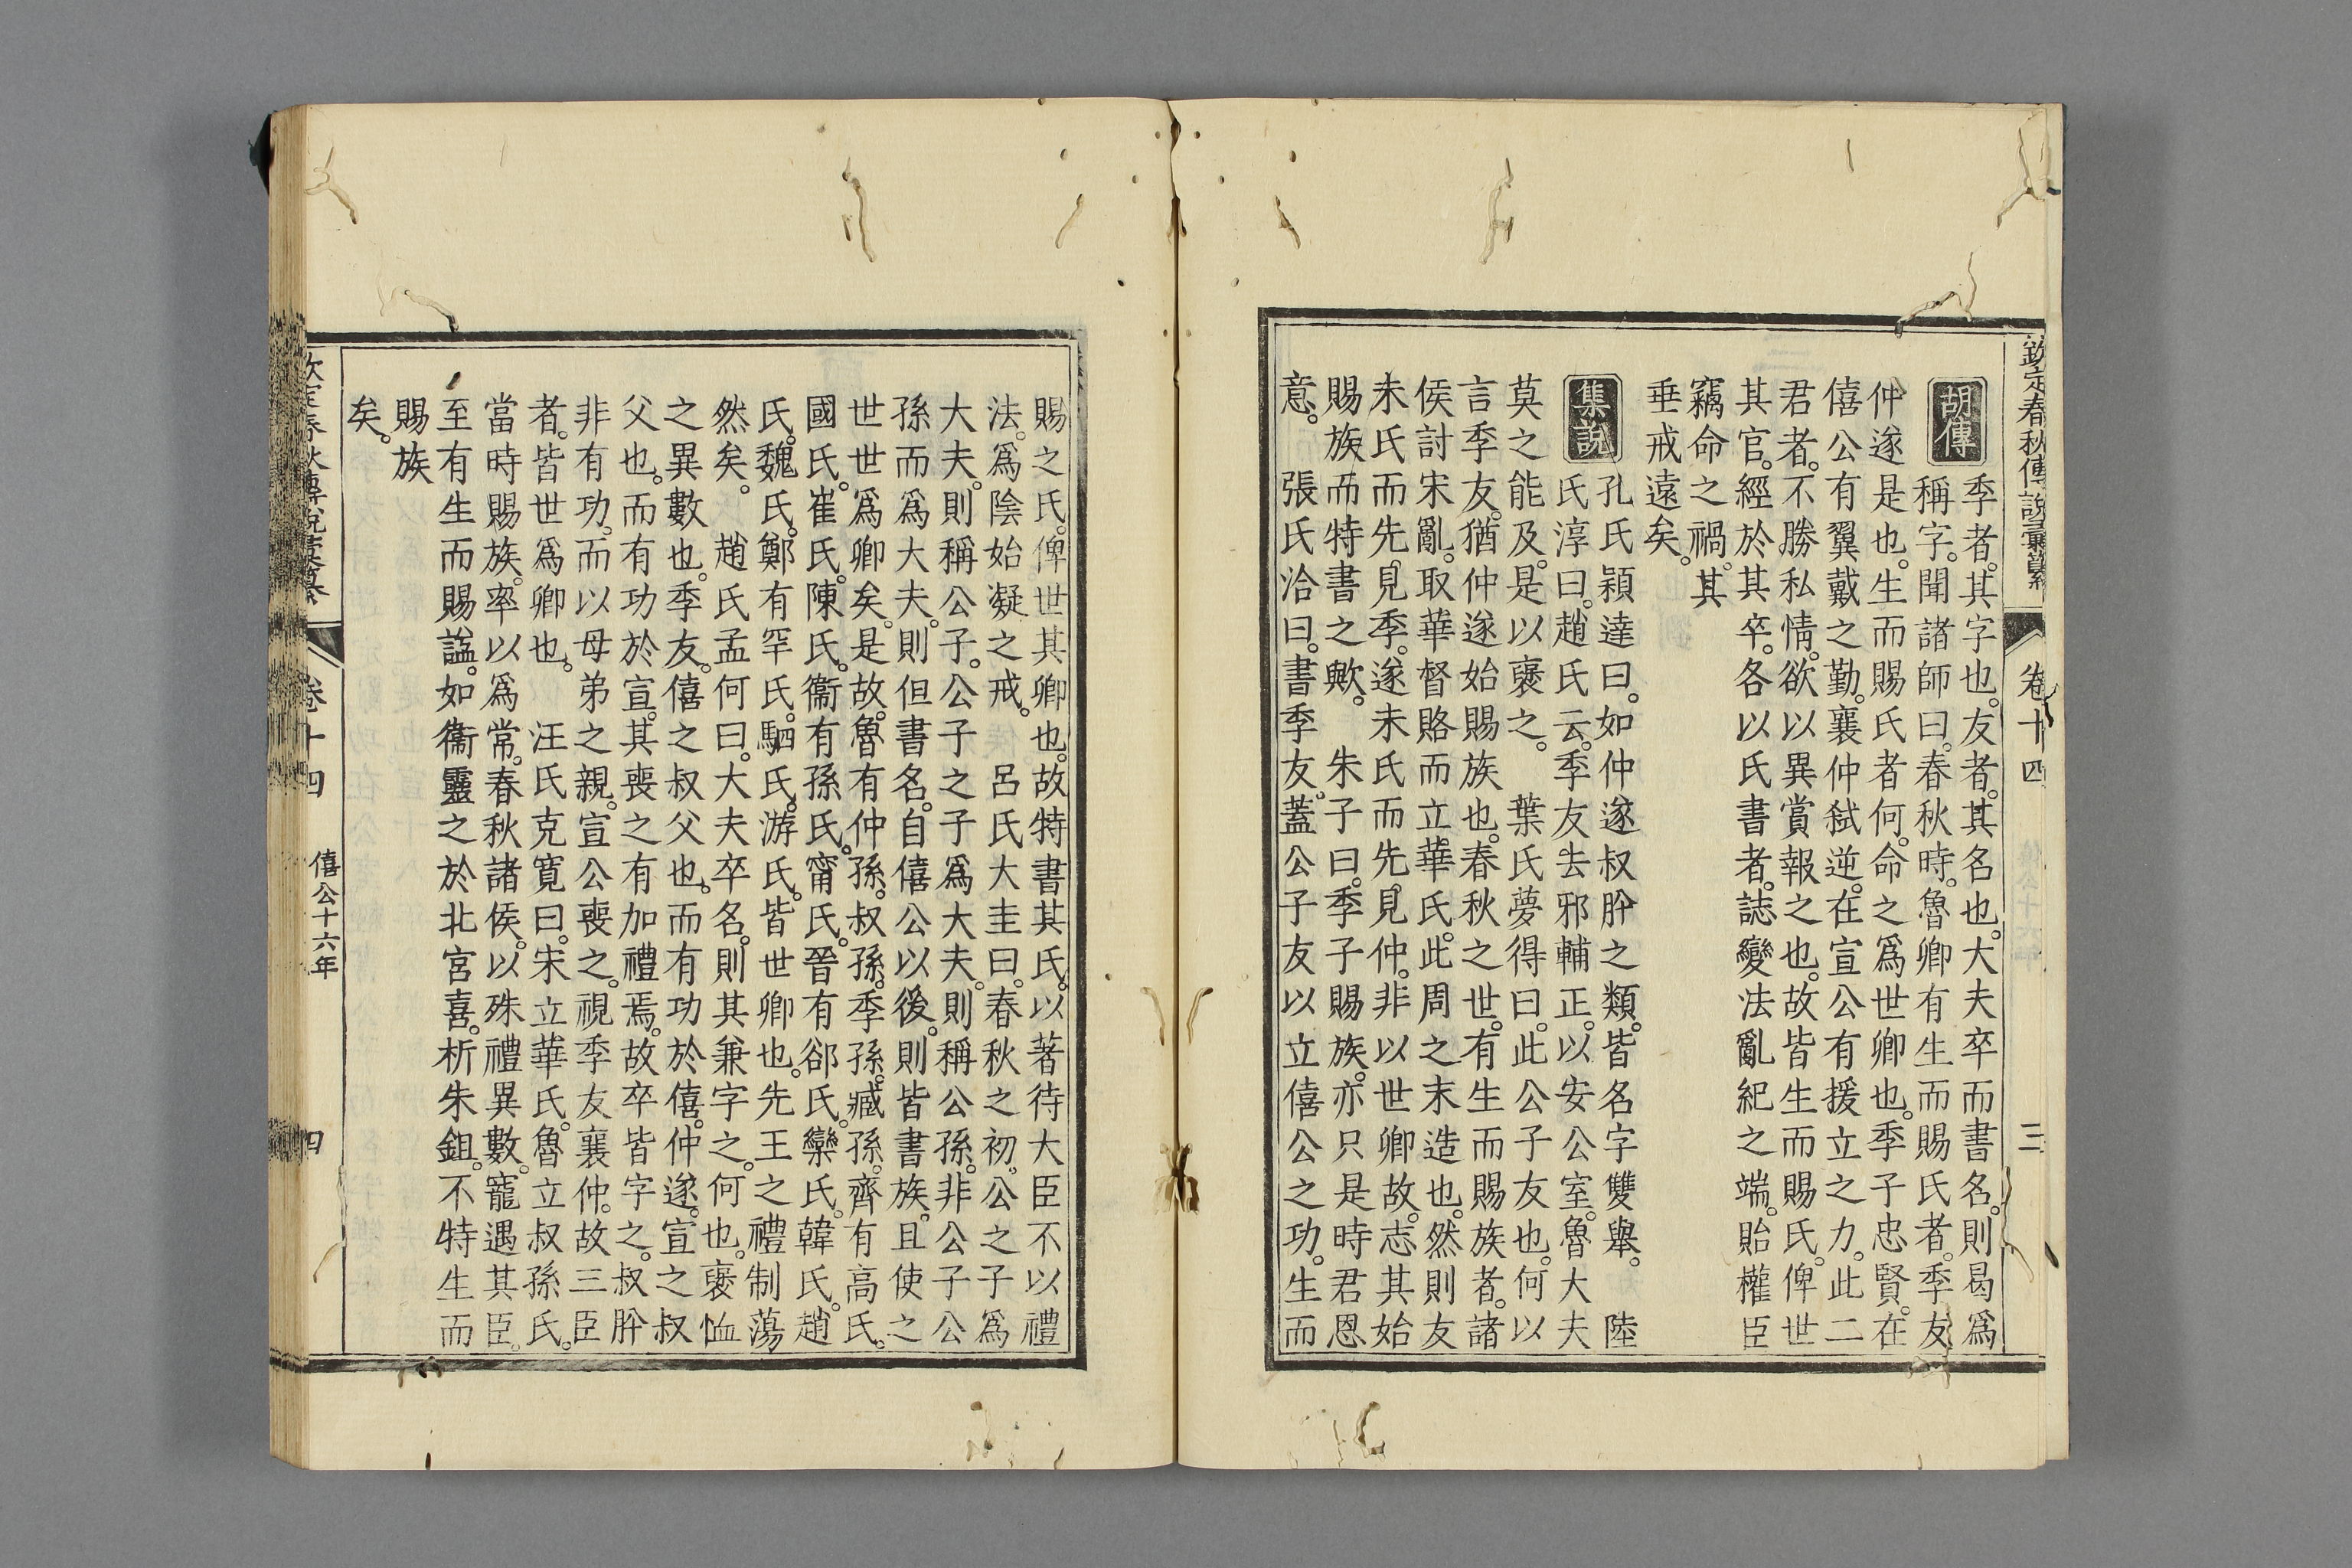 欽定春秋傳說彙纂 卷十四 三
胡傳 季者。其字也。友者。其名也。大夫卒而書名。則曷爲
稱字。聞諸師曰。春秋時。魯卿有生而賜氏者。季友
仲遂是也。生而賜氏者何。命之爲世卿也。季子忠賢。在
僖公有翼戴之勤。襄仲弑逆。在宣公有援立之力。此二
君者。不勝私情。欲以異賞報之也。故皆生而賜氏。俾世
其官。經於其卒。各以氏書者。誌變法亂紀之端。貽權臣
竊命之禍。其
垂戒遠矣。
集說 孔氏穎達曰。如仲遂叔肸之類。皆名字雙舉。 陸
氏淳曰。趙氏云。季友去邪輔正。以安公室。魯大夫
莫之能及。是以襃之。 葉氏夢得曰。此公子友也。何以
言季友。猶仲遂始賜族也。春秋之世。有生而賜族者。諸
侯討宋亂。取華督賂而立華氏。此周之末造也。然則友
未氏而先見季。遂未氏而先見仲。非以世卿故。志其始
賜族而特書之歟。 朱子曰。季子賜族。亦只是時君恩
意。 張氏洽曰。書季友。蓋公子友以立僖公之功。生而
賜之氏。俾世其卿也。故特書其氏。以著待大臣不以禮
法。爲陰始凝之戒。 呂氏大圭曰。春秋之初。公之子爲
大夫。則稱公子。公子之子爲大夫。則稱公孫。非公子公
孫而爲大夫。則但書名。自僖公以後。則皆書族。且使之
世世爲卿矣。是故。魯有仲孫。叔孫。季孫。臧孫。齊有高氏。
國氏。崔氏。陳氏。衞有孫氏。甯氏。晉有郤氏。欒氏。韓氏。趙
氏。魏氏。鄭有罕氏。駟氏。游氏。皆世卿也。先王之禮制蕩
然矣。 趙氏孟何曰。大夫卒名。則其兼字之。何也。襃恤
之異數也。季友。僖之叔父也。而有功於僖。仲遂。宣之叔
父也。而有功於宣。其喪之有加禮焉。故卒皆字之。叔肸
非有功。而以母弟之親。宣公喪之。視季友襄仲。故三臣
者。皆世爲卿也。 汪氏克寬曰。宋立華氏。魯立叔孫氏。
當時賜族。率以爲常。春秋諸侯。以殊禮異數。寵遇其臣。
至有生而賜諡。如衞靈之於北宮喜。析朱鉏。不特生而
賜族
矣。
欽定春秋傳說彙纂 卷十四 僖公十六年 四